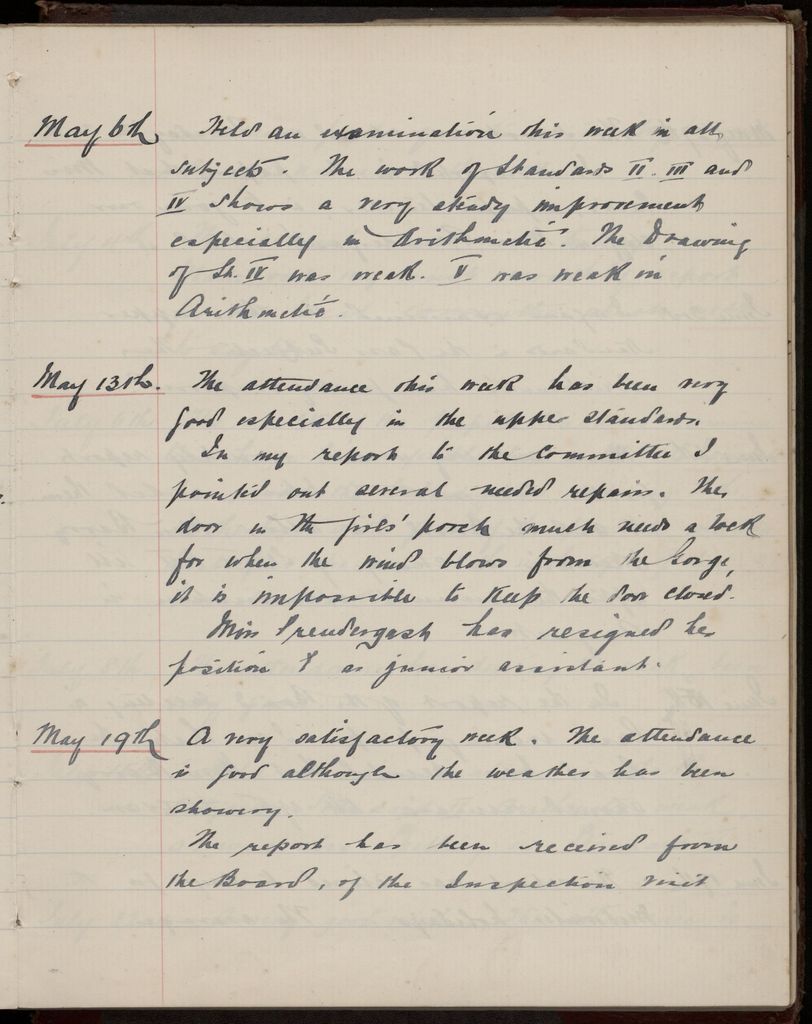 May 6th Held an examination this week in all
subjects. The work of Standards II. III and
IV shows a very steady improvement
especially in Arithmetic. The Drawing
of St. IV was weak. V was weak in
Arithmetic.
May 13th. The attendance this week has been very
good especially in the upper standards.
In my report to the Committee I
pointed out several needed repairs. The
door in the girls' porch much needs a lock
for when the wind blows from the Gorge,
it is impossible to keep the door closed.
Miss Prendergast has resigned her
position as junior assistant.
May 19th A very satisfactory week. The attendance
is good although the weather has been
showery.
The report has been received from
the Board, of the Inspection visit